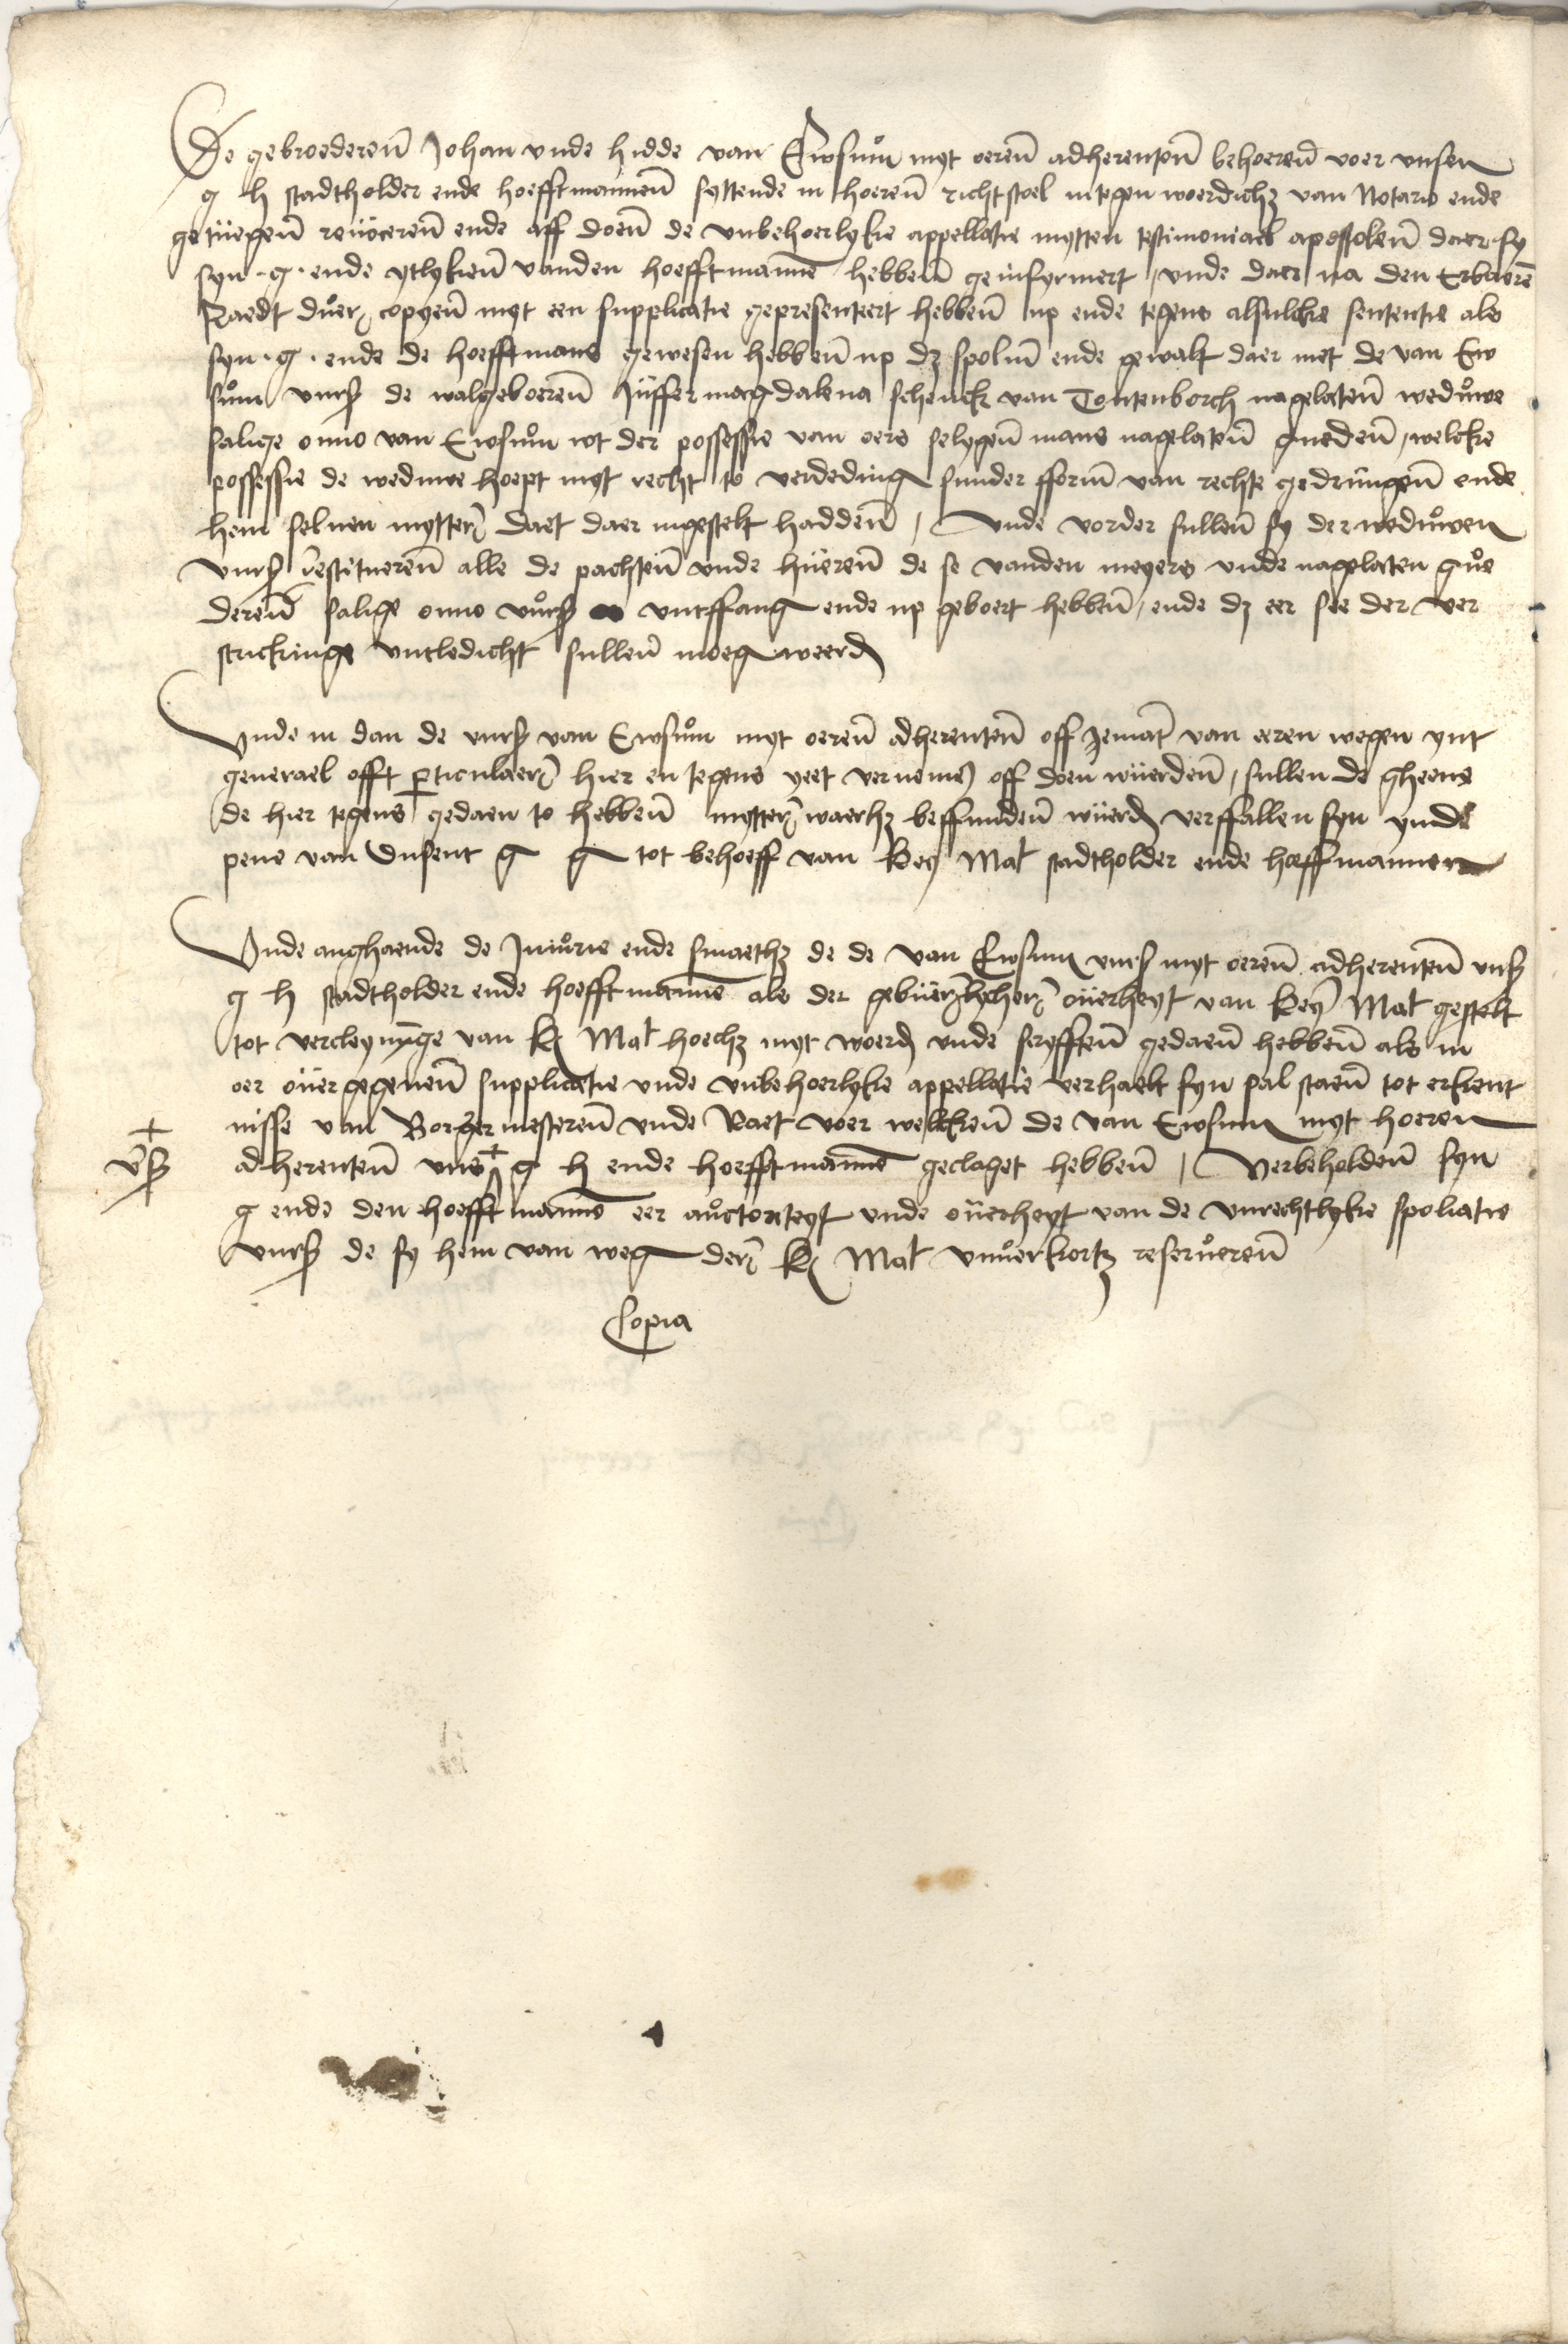 De gebroederen Johan vnde hidde van Ewsum myt oeren adherenten behoeren voer vnsen
g h stadtholder ende hoefftmannen syttende in hoeren richtstoel in tegenwoerdich3 van Notario ende
getuegen reuoceren ende aff doen de vnbehoerlyke appellatie mytten testimoniael apostolen daer sy
syn . g . ende ytlyken vanden hoefftmanne hebben geinsynuert / vnde daer na den Erbaere
Raedt duer copyen myt een supplicatie gepresenteert hebben up ende tegens alsulcke sententie als
syn . g . ende de hoefftmans gewesen hebben up d3 spolium ende gewalt daer met de van Ew
sum vurs de walgeboeren Juffer magdalena schenck van Toutenborch nagelaten weduwe
salige onno van Ewsum wt der possessie van oers selygen mans nagelaten gueden / welcke
possessie de weduwe hoept myt recht to verdeding sunder fform van rechte gedrungen ende
hem seluen mytter daet daer ingestelt hadden / Vnde vorder sullen sy der weduwen
vurs restitueren alle de pachten vnde hueren de se vanden meyers vnde nagelaten gue
deren salige onno vurs vntffang ende up geboert hebben / ende d3 eer see der ver
strickinge vntledicht sullen moeg weerd

Vnde in dan de vurs van Ewsum myt oeren adherenten off jemant van eeren wegen ynt
generael offt perticulaer hier en tegens yeet vernemen off doen wuerden / sullen de gheene
de hier tegens gedaen to hebben mytter waerh3 beffunden wuerd verffallen syn ynde
pene van dusent g g tot behoeff van Key Mat stadtholder ende hoeffmannen

Vnde anghaende de Iniurie ende smaeth3 de de van Ewsum vurs myt oeren adherenten vns
g h stadtholder ende hoefftmanne als der gebuerlycher ouerheyt van Key Mat gestelt
tot vercleynynge van K Mat hoech3 myt woerd vnde scryfften gedaen hebben als in
oer ouergegeuen supplicatie vnde vnbehoerlyke appellatie verhaelt syn sal staen tot erkent
nisse van Borgermesteren vnde Raet voer welcken de van Ewsum myt hoeren
+ vs adherenten vns + g h ende hoefftmanne geclaget hebben / Verbeholden syn
g ende den hoefftmanne eer auctoriteyt vnde ouerheyt van de vnrechtlyke spoliatie
vurs de sy hem van weg der K Mat vnuerkort3 reserueren
Copia